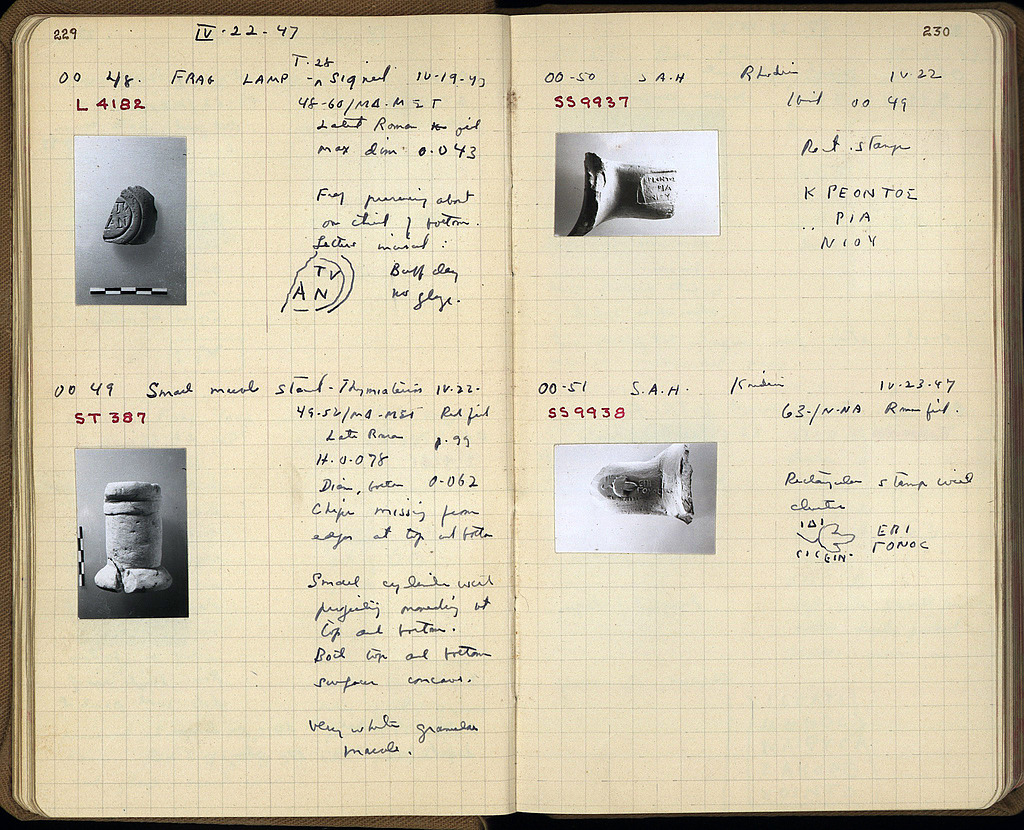 229
IV-22-47
T. 28
OO 48. FRAG LAMP - Signed IV-19-47
L 4182
48-60/MA-MET
Late Roman fill
max dim. 0.043
Frag preserving about
one third of bottom.
Letters incised:
TV
AN
Buff clay
no glaze.
OO 49 Small marble stand - Thymiaterion IV-22-
ST 387
49-52/MA-MET Red fill
Late Roman p. 99
H. 0.078
Diam, bottom 0.062
Chips missing from
edges at top and bottom
Small cylinder with
projecting moulding at
top and bottom.
Both top and bottom
surfaces concave.
Very white granular
marble.
230
OO-50 S A H Rhodian IV-22
SS9937
OO 49
Rect. stamp
ΚΡΕΟΝΤΟΣ
ΡΙΑ
ΝΙΟΥ
OO-51 S.A.H. Knidian IV-23-47
SS9938
63-/Ν-ΝΑ Roman fill.
Rectangular stamp with
ΙΔΙ
ΕΠΙ
ΓΟΝΟC